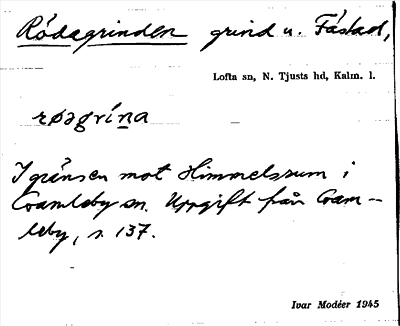 Rödagrinden grind u. Fästad,
Lofta sn, N. Tjusts hd, Kalm. l.
røǝgrína
I gränsen mot Himmelsrum i
Gamleby sn. Uppgift från Gam-
leby, s. 137.
Ivar Modéer 1945